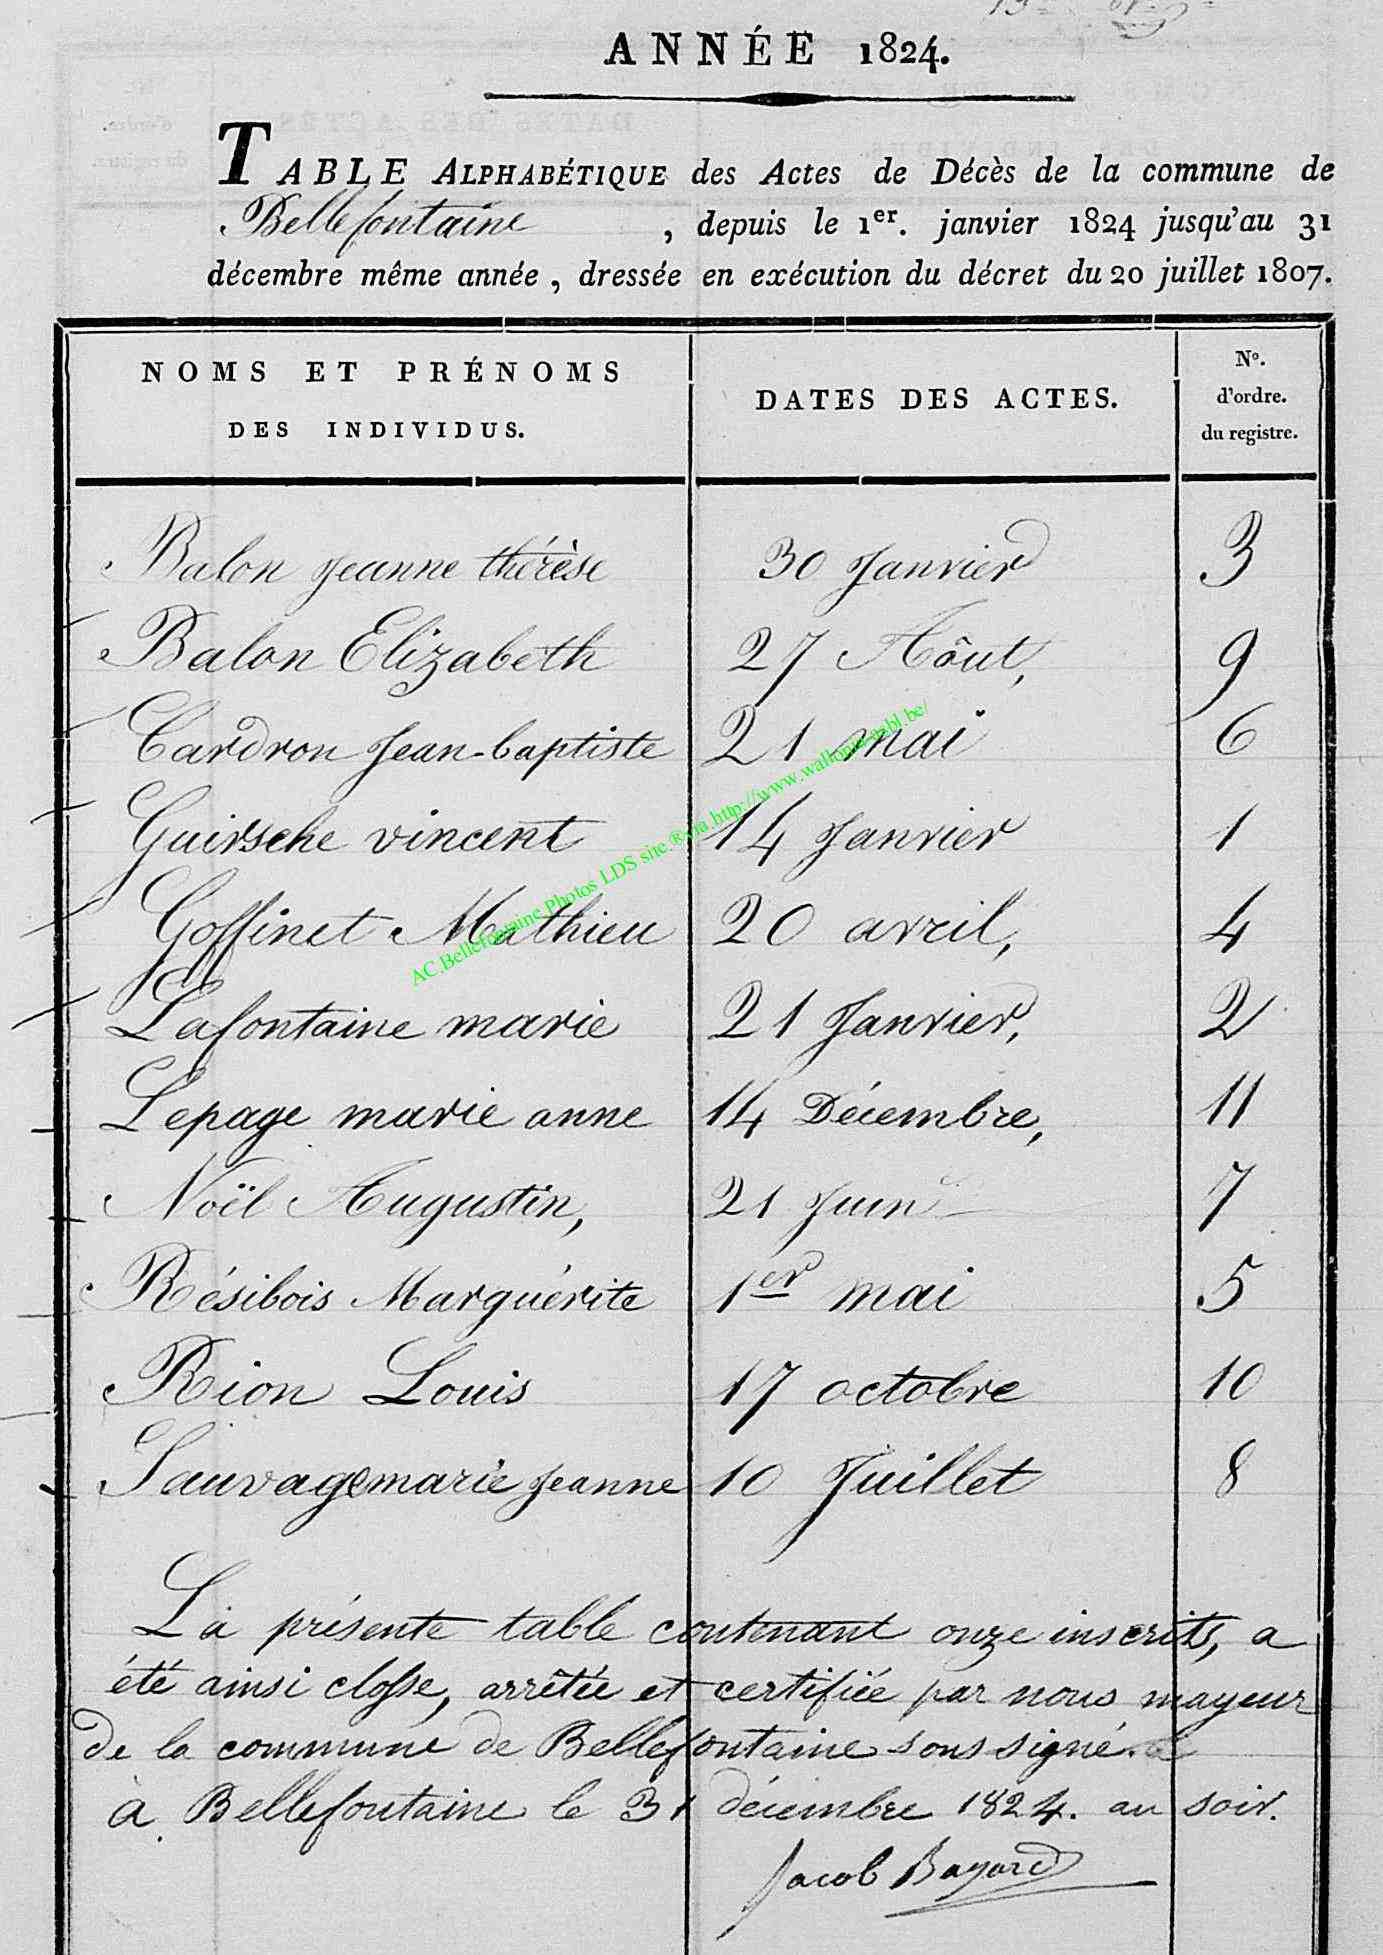 ANNÉE 1824.
TABLE ALPHABÉTIQUE des Actes de Décès de la commune de
Bellefontaine , depuis le 1er. janvier 1824 jusqu'au 31
décembre même année, dressée en exécution du décret du 20 juillet 1807.
NOMS ET PRÉNOMS DES INDIVIDUS. DATES DES ACTES. No. d'ordre. du registre.
Balon Jeanne thérèse 30 Janvier 3
Balon Elizabeth 27 Aôut, 9
Cardron Jean-baptiste 21 mai 6
Guirsche vincent 14 Janvier 1
Goffinet Mathieu 20 avril, 4
Lafontaine marie 21 Janvier, 2
Lepage marie anne 14 Décembre, 11
Noël Augustin, 21 Juin 7
Résibois Marguérite 1er mai 5
Rion Louis 17 octobre 10
Sauvage marie Jeanne 10 Juillet 8
La présente table contenant onze inscrits, a
été ainsi closse, arrêtée et certifiée par nous mayeur
de la commune de Bellefontaine soussigné.
à Bellefontaine le 31 décembre 1824. au soir.
Jacob Bayard
AC.Bellefontaine Photos LDS site ® via http://www.wallonia-asbl.be/